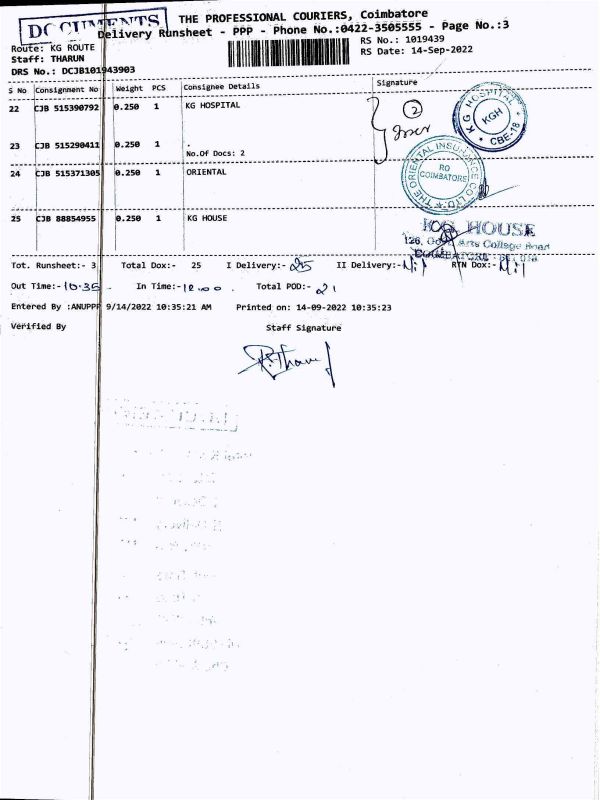 DOCUMENTS
THE PROFESSIONAL COURIERS, Coimbatore
Delivery Runsheet - PPP - Phone No.:0422-3505555 - Page No.:3
Route: KG ROUTE
RS No.: 1019439
Staff: THARUN
RS Date: 14-Sep-2022
DRS No.: DCJB101943903
S No Consignment No Weight PCS Consignee Details Signature
22 CJB 515390792 0.250 1 KG HOSPITAL
2
KG HOSPITAL KGH CBE-18
23 CJB 515290411 0.250 1 .
No.Of Docs: 2
24 CJB 515371305 0.250 1 ORIENTAL
THE ORIENTAL INSURANCE CO LTD RO COIMBATORE
25 CJB 88854955 0.250 1 KG HOUSE
KG HOUSE
126, Govt Arts College Road
COIMBATORE
Tot. Runsheet:- 3 Total Dox:- 25 I Delivery:- 25 II Delivery:- Nil RTN Dox:- Nil
Out Time:- 10.35 In Time:- 12.00 Total POD:- 21
Entered By :ANUPPP 9/14/2022 10:35:21 AM Printed on: 14-09-2022 10:35:23
Verified By Staff Signature
R.Tharun